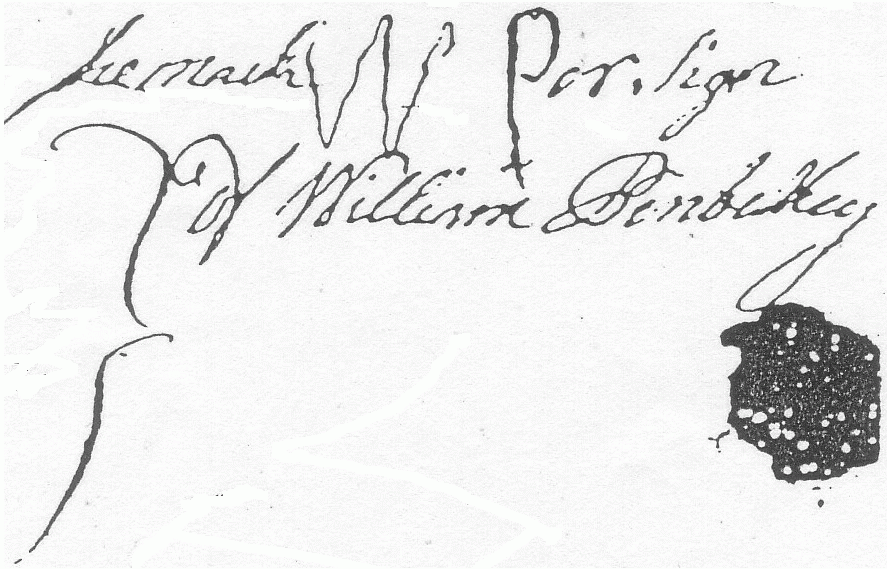 the mark W P or sign
of William Pinbethy